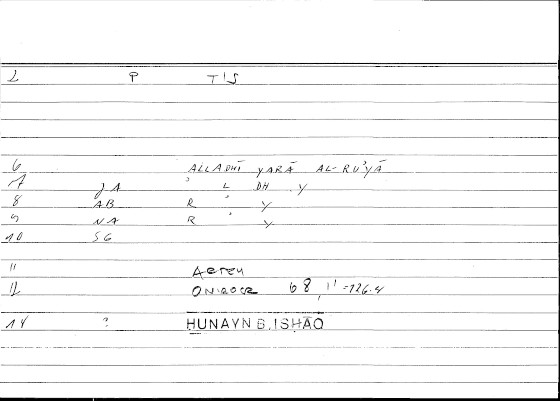 2 P TIS
6 ALLADHĪ YARĀ AL-RU'YĀ
7 JA ' L DH Y
8 AB R ' Y
9 NA R ' Y
10 SG
11 ARTEM
12 ONIROCR 68,11=126.4
14 ? HUNAYN B. ISḤĀQ